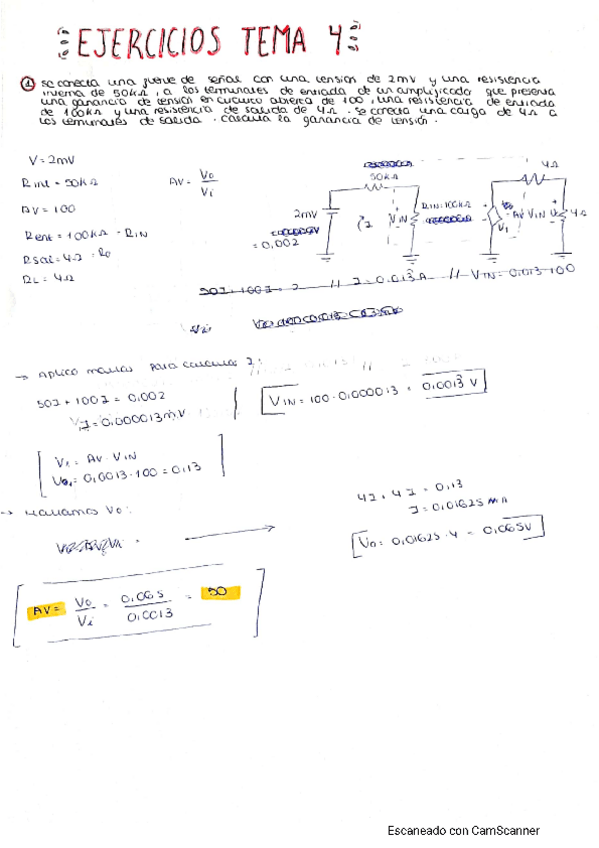 EJERCICIOS TEMA 4
① se conecta una fuente de señal con una tension de 2mV y una resistencia
interna de 50kΩ, a los terminales de entrada de un amplificador que presenta
una ganancia de tension en circuito abierto de 100, una resistencia de entrada
de 100kΩ y una resistencia de salida de 4Ω. se conecta una carga de 4Ω a
los terminales de salida. calcula la ganancia de tension.
V = 2mV
Rint = 50kΩ
AV = Vo / Vi
AV = 100
Rent = 100kΩ = RIN
Rsal = 4Ω = Ro
RL = 4Ω
50kΩ
2mV
= 0,002
I
VIN
RIN: 100kΩ
4Ω
AV VIN
V1
4Ω
50I + 100I = 2 // I = 0.013A // VIN = 0.013·100
→ Aplico mallas para calcular I:
50I + 100I = 0,002
I = 0,000013mV
VIN = 100·0,000013 = 0,0013 V
V1 = AV·VIN
0,0013·100 = 0,13
→ Hallamos Vo:
4I + 4I = 0,13
I = 0,01625 mA
Vo = 0,01625·4 = 0,065V
AV = Vo / Vi = 0,065 / 0,0013 = 50
Escaneado con CamScanner